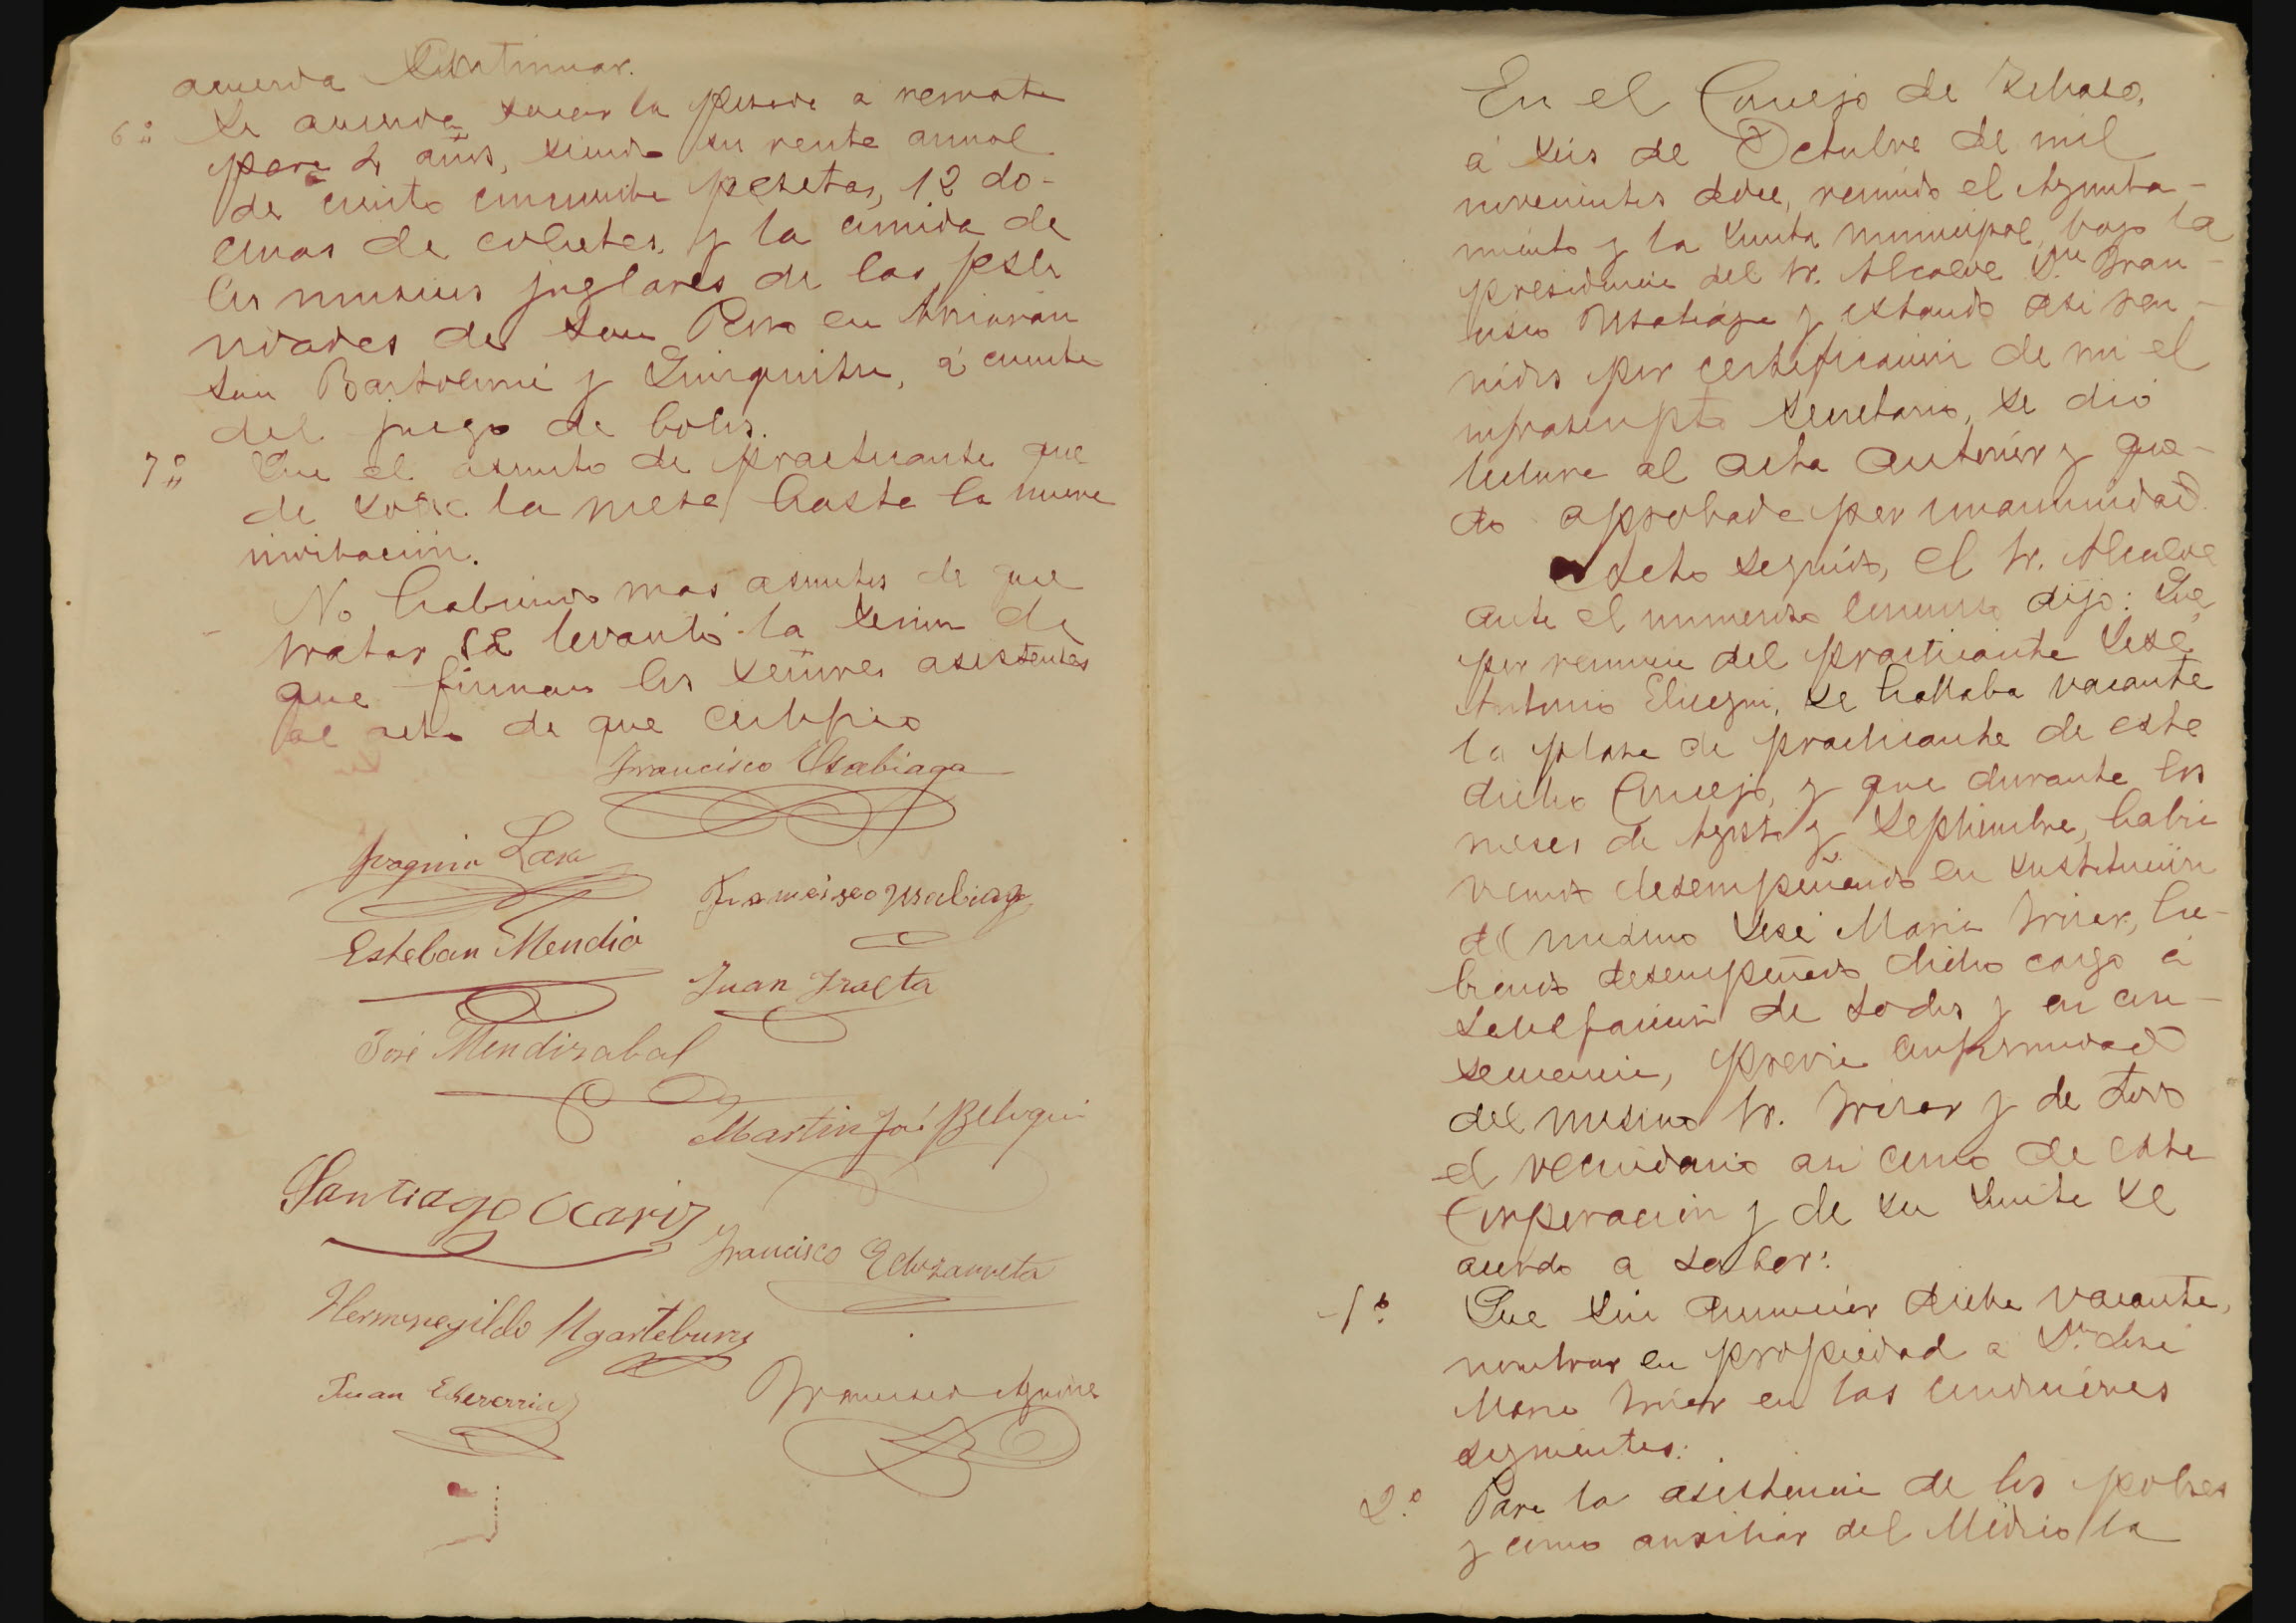 acuerda continuar.
6º Se acuerda sacar la posada a remate
para 2 años, siendo su renta anual
de ciento cincuenta pesetas, 12 do-
cenas de cohetes, y la comida de
los musicos juglares de las festi
vidades de San Pedro en Arriaran
San Bartolomé y Quinquitsu, á cuenta
del juego de bolos.
7º Que el asunto de practicante que
de sobre la mesa hasta la nueva
invitacion.
No habiendo mas asuntos de que
tratar se levantó la sesion de
que firman los señores asistentes
al acto de que certifico
Francisco Usabiaga
Joaquin Lasa
Francisco Usabiaga
Esteban Mendia
Juan Iraeta
José Mendizabal
Martin José Beloqui
Santiago Ocariz
Francisco Echezarreta
Hermenegildo Ugarteburu
Juan Echeverria
Francisco Aguirre
En el Concejo de
á seis de Octubre de mil
novecientos doce, reunido el Ayunta-
miento y la Junta municipal, bajo la
presidencia del Sr. Alcalde Dn Fran-
cisco Usabiaga y estando asi reu-
nidos por certificacion de mi el
infrascripto Secretario, se dió
lectura al acta anterior y que-
do aprobada por unanimidad.
Acto seguido, el Sr. Alcalde
ante el numeroso concurso dijo: Que
por renuncia del practicante José
Antonio Elicegui, se hallaba vacante
la plaza de practicante de este
dicho Concejo, y que durante los
meses de Agosto y Septiembre, habia
venido desempeñando en sustitucion
del mismo José Maria Irizar, ha-
biendo desempeñado dicho cargo á
satisfaccion de todos y en con-
secuencia, previa conformidad
del mismo Sr. Irizar y de todo
el vecindario asi como de esta
Corporacion y de su Junta se
acordo a saber:
1º Que sin anunciar dicha vacante,
nombrar en propiedad a Dn José
Maria Irizar en las condiciones
siguientes:
2º Para la asistencia de los pobres
y como auxiliar del Médico la